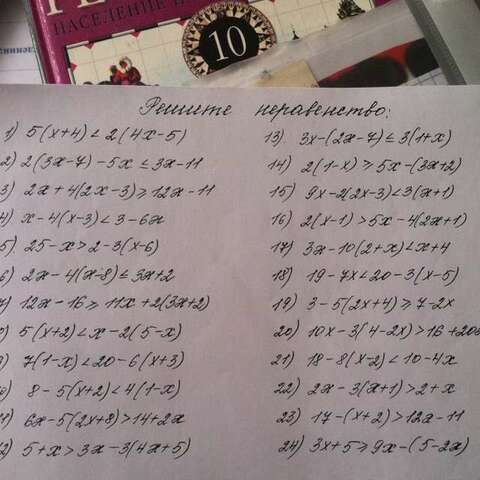 НАСЕЛЕНИЕ
10
Решите неравенство:
1) 5(x+4)<2(4x-5)
2) 2(3x-7)-5x≤3x-11
3) 2x+4(2x-3)≥12x-11
4) x-4(x-3)<3-6x
5) 25-x>2-3(x-6)
6) 2x-4(x-8)≤3x+2
7) 12x-16≥11x+2(3x+2)
5(x+2)<x-2(5-x)
7(1-x)<20-6(x+3)
8-5(x+2)<4(1-x)
6x-5(2x+8)>14+2x
5+x>3x-3(4x+5)
13) 3x-(2x-7)≤3(1+x)
14) 2(1-x)≥5x-(3x+2)
15) 9x-2(2x-3)<3(x+1)
16) 2(x-1)>5x-4(2x+1)
17) 3x-10(2+x)<x+4
18) 19-7x<20-3(x-5)
19) 3-5(2x+4)≥7-2x
20) 10x-3(4-2x)>16+20
21) 18-8(x-2)<10-4x
22) 2x-3(x+1)>2+x
23) 17-(x+2)>12x-11
24) 3x+5≥9x-(5-2x)